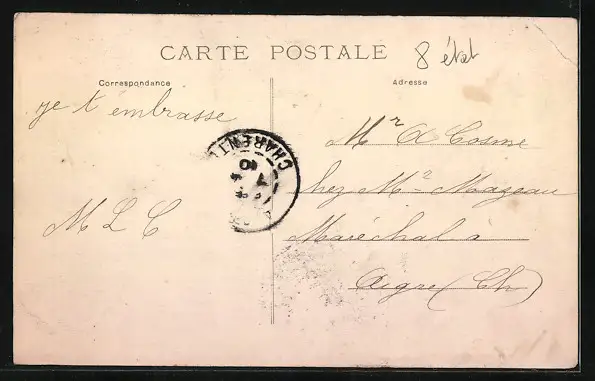 CARTE POSTALE
8 état
Correspondance
Adresse
je t'embrasse
M L C
CHARENTE
Mr A Cosme
chez Mr Mazeau
Maréchal à
Aigre (Ch)